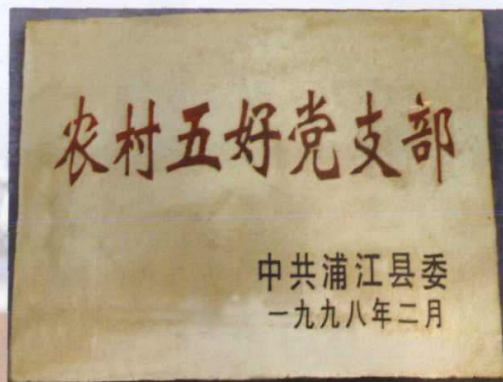 农村五好党支部
中共浦江县委
一九九八年二月